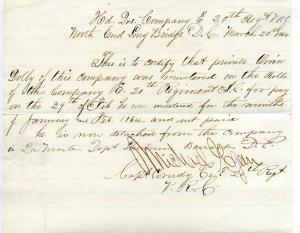 Hd Qrs Company E 20th Regt VRC
North End Long Bridge D.C. March 25th
This is to certify that private
Dolly of this company was mustered on the Rolls
of the Company E. 20th Regiment for pay
on the 29th of Feb he was mustered for the months
of January and Feb. 1864 and not paid
he is now detached from the company
in Dept D.C.
Michael
Capt Comdg Co E 20th Regt
V. R. C.